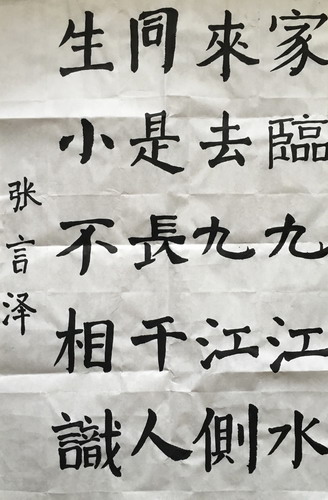 家臨九江水
來去九江側
同是長干人
生小不相識
张言泽